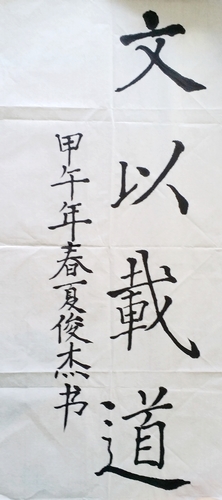 文以載道
甲午年春夏俊杰书